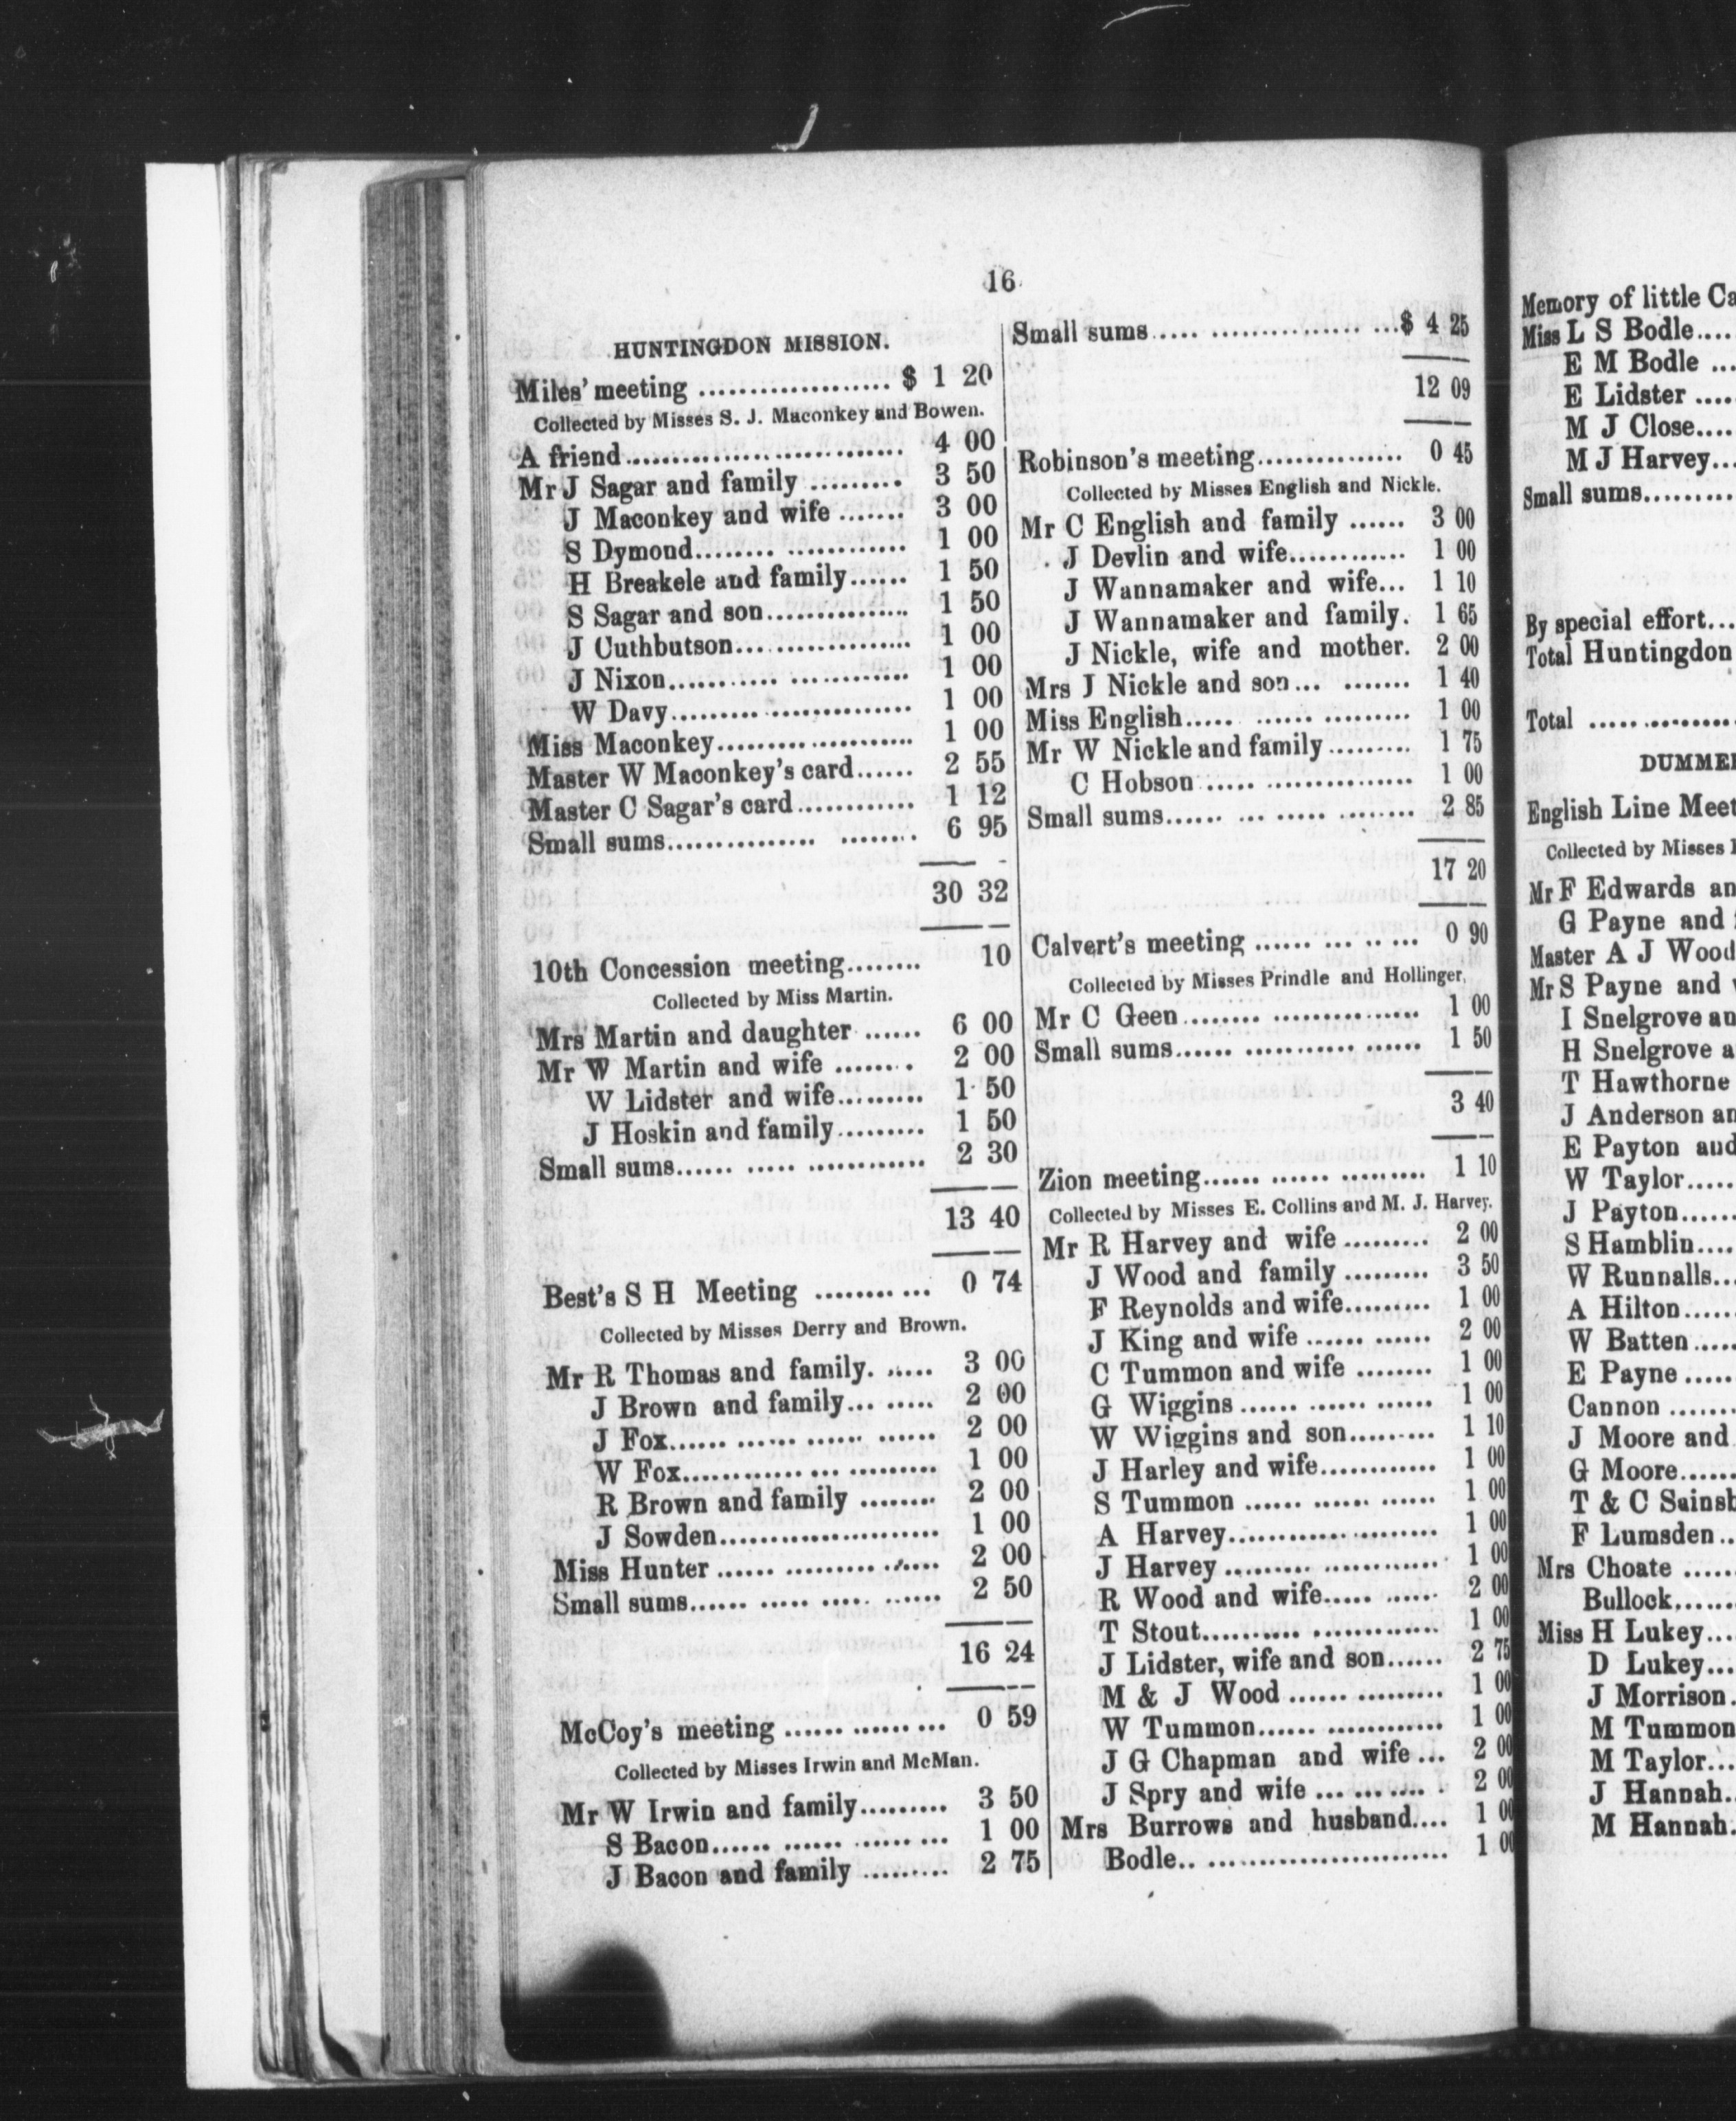 16
HUNTINGDON MISSION.
Miles' meeting ................... $ 1 20
Collected by Misses S. J. Maconkey and Bowen.
A friend............................ 4 00
Mr J Sagar and family ......... 3 50
J Maconkey and wife ....... 3 00
S Dymond........ ............ 1 00
H Breakele and family...... 1 50
S Sagar and son............... 1 50
J Cuthbutson.................. 1 00
J Nixon........... ............ 1 00
W Davy......... .............. 1 00
Miss Maconkey.................... 1 00
Master W Maconkey's card...... 2 55
Master C Sagar's card............ 1 12
Small sums............... ........ 6 95
30 32
10th Concession meeting........ 10
Collected by Miss Martin.
Mrs Martin and daughter ...... 6 00
Mr W Martin and wife ........ 2 00
W Lidster and wife......... 1 50
J Hoskin and family......... 1 50
Small sums...... ..... ............ 2 30
13 40
Best's S H Meeting ............ 0 74
Collected by Misses Derry and Brown.
Mr R Thomas and family. ..... 3 00
J Brown and family... ..... 2 00
J Fox...... ...... ...... ...... 2 00
W Fox............. ... ......... 1 00
R Brown and family ........ 2 00
J Sowden...................... 1 00
Miss Hunter ...... ......... ...... 2 00
Small sums...... ..... ..... ...... 2 50
16 24
McCoy's meeting ...... ...... ... 0 59
Collected by Misses Irwin and McMan.
Mr W Irwin and family......... 3 50
S Bacon...... ...... ...... ... 1 00
J Bacon and family ......... 2 75
Small sums..... ................ ...$ 4 25
12 09
Robinson's meeting............... 0 45
Collected by Misses English and Nickle.
Mr C English and family ...... 3 00
J Devlin and wife............ 1 00
J Wannamaker and wife... 1 10
J Wannamaker and family. 1 65
J Nickle, wife and mother. 2 00
Mrs J Nickle and son... ....... 1 40
Miss English..... ...... ......... 1 00
Mr W Nickle and family ......... 1 75
C Hobson ..... ............... 1 00
Small sums...... ... ..... ........ 2 85
17 20
Calvert's meeting ...... ... .. ... 0 90
Collected by Misses Prindle and Hollinger.
Mr C Geen........ ............... 1 00
Small sums...... ........... ...... 1 50
3 40
Zion meeting...... ...... ......... 1 10
Collected by Misses E. Collins and M. J. Harvey.
Mr R Harvey and wife ......... 2 00
J Wood and family ......... 3 50
F Reynolds and wife......... 1 00
J King and wife ...... ...... 2 00
C Tummon and wife ........ 1 00
G Wiggins ...... ...... ...... 1 00
W Wiggins and son......... 1 10
J Harley and wife............ 1 00
S Tummon ...... ...... ...... 1 00
A Harvey...................... 1 00
J Harvey ......... ............ 1 00
R Wood and wife..... ...... 2 00
T Stout.......... ............. 1 00
J Lidster, wife and son...... 2 75
M & J Wood ...... ......... 1 00
W Tummon...... ............ 1 00
J G Chapman and wife ... 2 00
J Spry and wife ... ...... . 2 00
Mrs Burrows and husband.... 1 00
Bodle.. ......................... 1 00
Memory of little
Miss L S Bodle....
E M Bodle ...
E Lidster ....
M J Close....
M J Harvey...
Small sums.........
By special effort...
Total Huntingdon
Total ..............
English Line
Collected by Misses
Mr F Edwards
G Payne and
Master A J Wood
Mr S Payne and
I Snelgrove
H Snelgrove
T Hawthorne
J Anderson
E Payton and
W Taylor.....
J Payton......
S Hamblin....
W Runnalls..
A Hilton.....
W Batten.....
E Payne .....
Cannon .......
J Moore and
G Moore......
T & C
F Lumsden..
Mrs Choate ......
Bullock......
Miss H Lukey....
D Lukey...
J Morrison.
M Tummon
M Taylor...
J Hannah..
M Hannah.